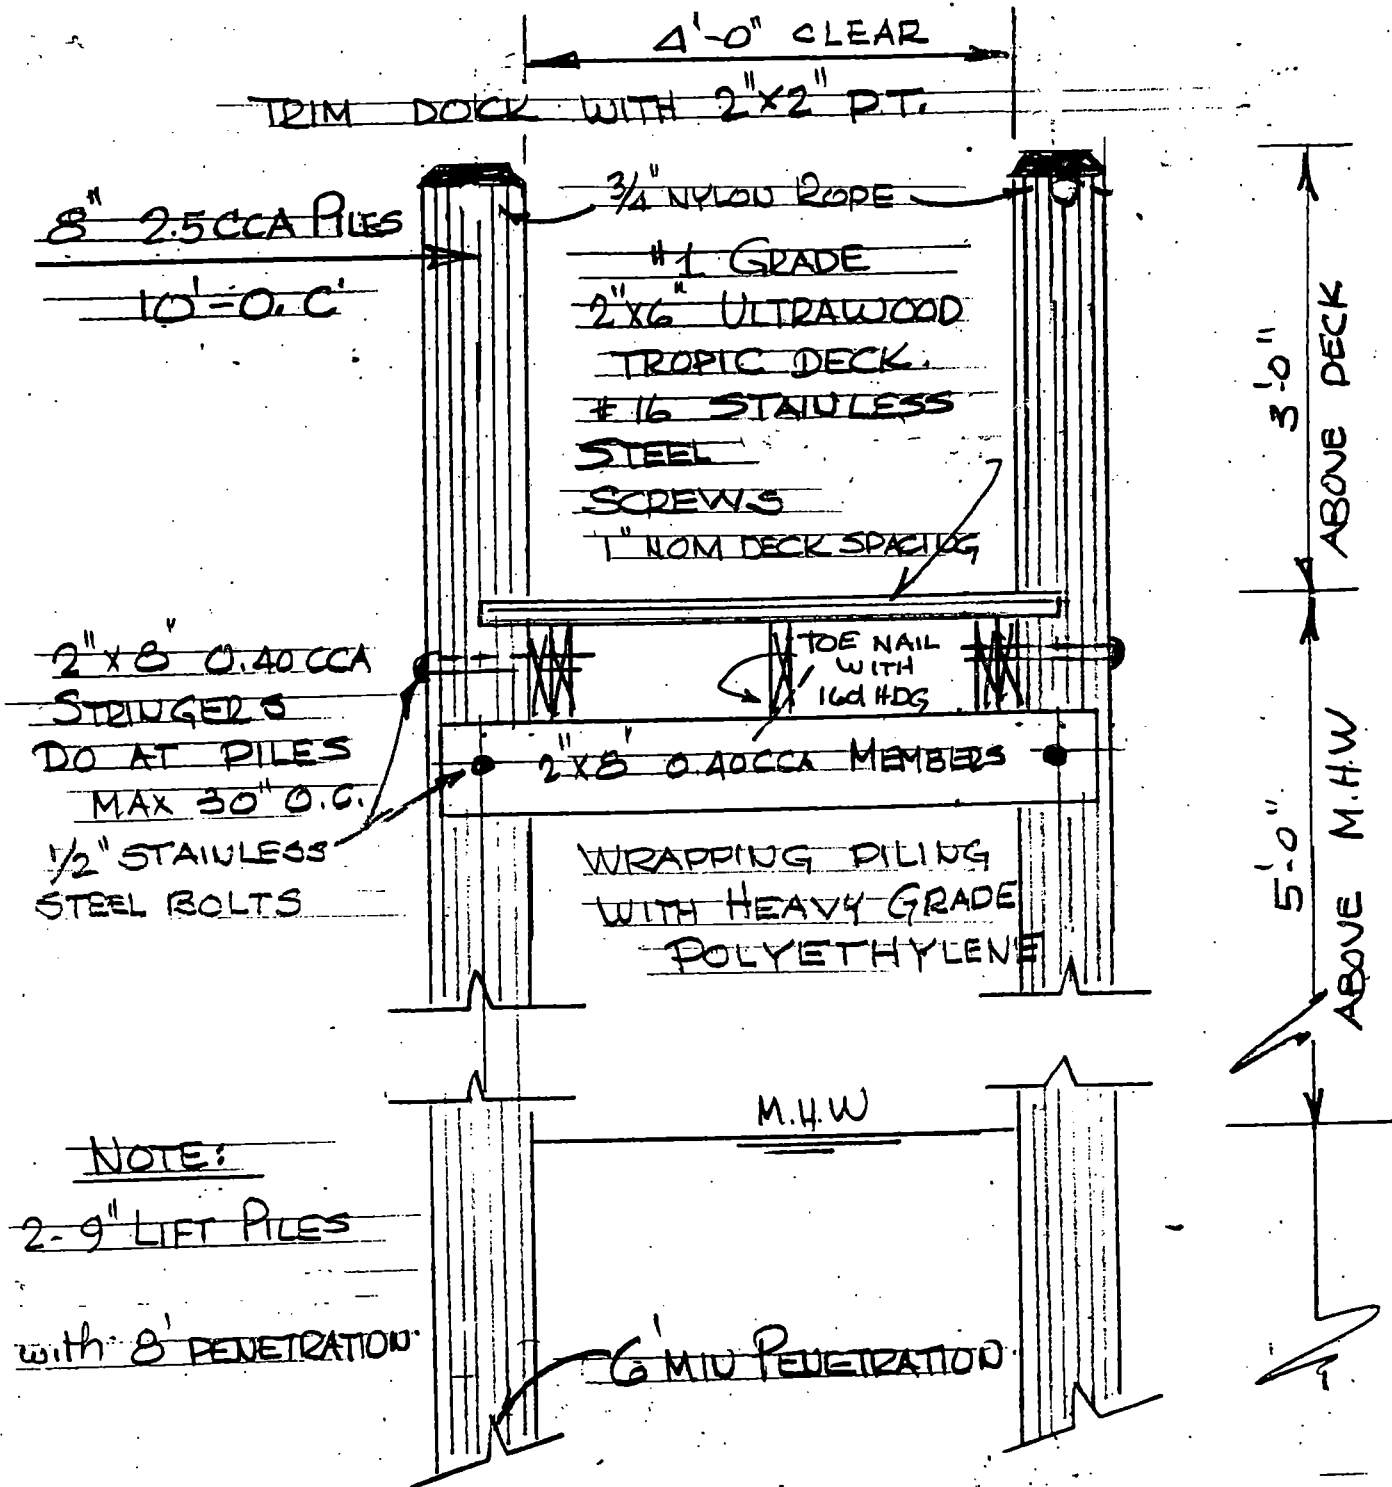 4'-0" CLEAR
TRIM DOCK WITH 2"X2" P.T.
8" 2.5 CCA PILES
10'=O.C'
3/4" NYLON ROPE
#1 GRADE
2"X6" ULTRAWOOD
TROPIC DECK.
#16 STAINLESS
STEEL
SCREWS
1" NOM DECK SPACING
3'-0"
ABOVE DECK
2"X8" 0.40 CCA
STRINGERS
DO AT PILES
MAX 30" O.C.
1/2" STAINLESS
STEEL BOLTS
TOE NAIL
WITH
16d HDG
2"X8" 0.40 CCA MEMBERS
WRAPPING PILING
WITH HEAVY GRADE
POLYETHYLENE
5'-0"
ABOVE M.H.W
M.H.W
NOTE:
2-9" LIFT PILES
with 8' PENETRATION
6' MIN PENETRATION